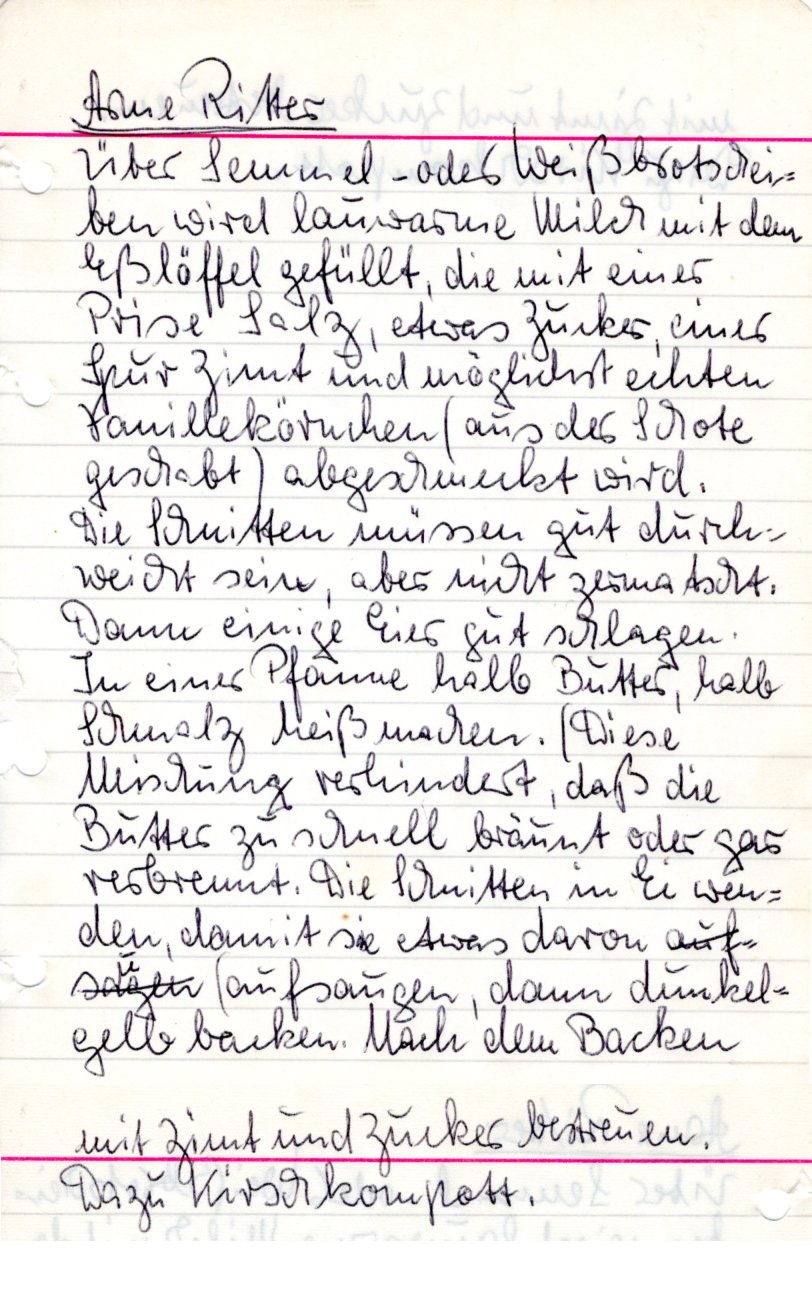 Arme Ritter
Über Semmel- oder Weißbrotschei=
ben wird lauwarme Milch mit dem
Eßlöffel gefüllt, die mit einer
Prise Salz, etwas Zucker, einer
Spur Zimt und möglichst echten
Vanillekörnchen (aus der Schote
geschabt) abgeschmeckt wird.
Die Schnitten müssen gut durch=
weicht sein, aber nicht zermatscht.
Dann einige Eier gut schlagen.
In einer Pfanne halb Butter, halb
Schmalz heiß machen. (Diese
Mischung verhindert, daß die
Butter zu schnell bräunt oder gar
verbrennt. Die Schnitten in Ei wen=
den, damit sie etwas davon auf=
saugen (aufsaugen, dann dunkel=
gelb backen. Nach dem Backen
mit Zimt und Zucker bestreuen.
Dazu Kirschkompott.